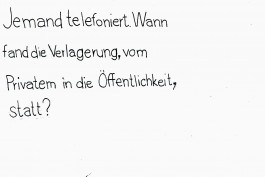 Jemand telefoniert. Wann
fand die Verlagerung, vom
Privatem in die Öffentlichkeit,
statt?